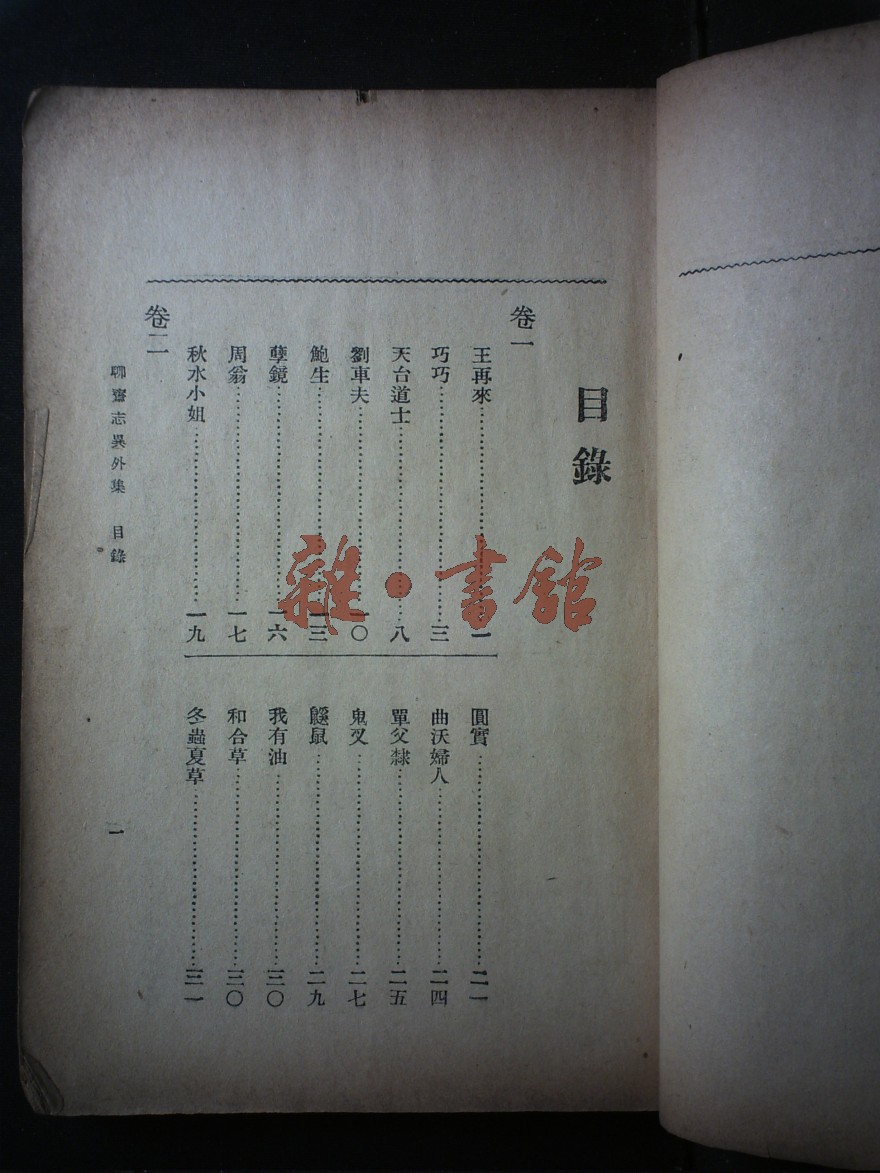 目錄
卷一
王再來……一
巧巧……三
天台道士……八
劉車夫……一〇
鮑生……一三
孽鏡……一六
周翁……一七
秋水小姐……一九
圓實……二一
曲沃婦人……二四
單父隸……二五
鬼叉……二七
鼷鼠……二九
我有油……三〇
和合草……三〇
冬蟲夏草……三一
卷二
聊齋志異外集 目錄
一
雜·書館